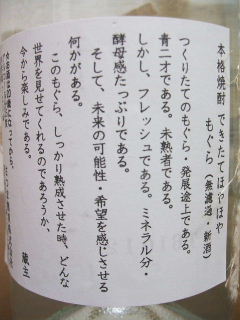 本格焼酎 できたてほやほや
もぐら（無濾過・新酒）
つくりたてのもぐら・発展途上である。
青二才である。未熟者である。
しかし、フレッシュである。ミネラル分・
酵母感たっぷりである。
そして、未来の可能性・希望を感じさせる
何かがある。
このもぐら、しっかり熟成させた時、どんな
世界を見せてくれるのであろうか、
今から楽しみである。
蔵主